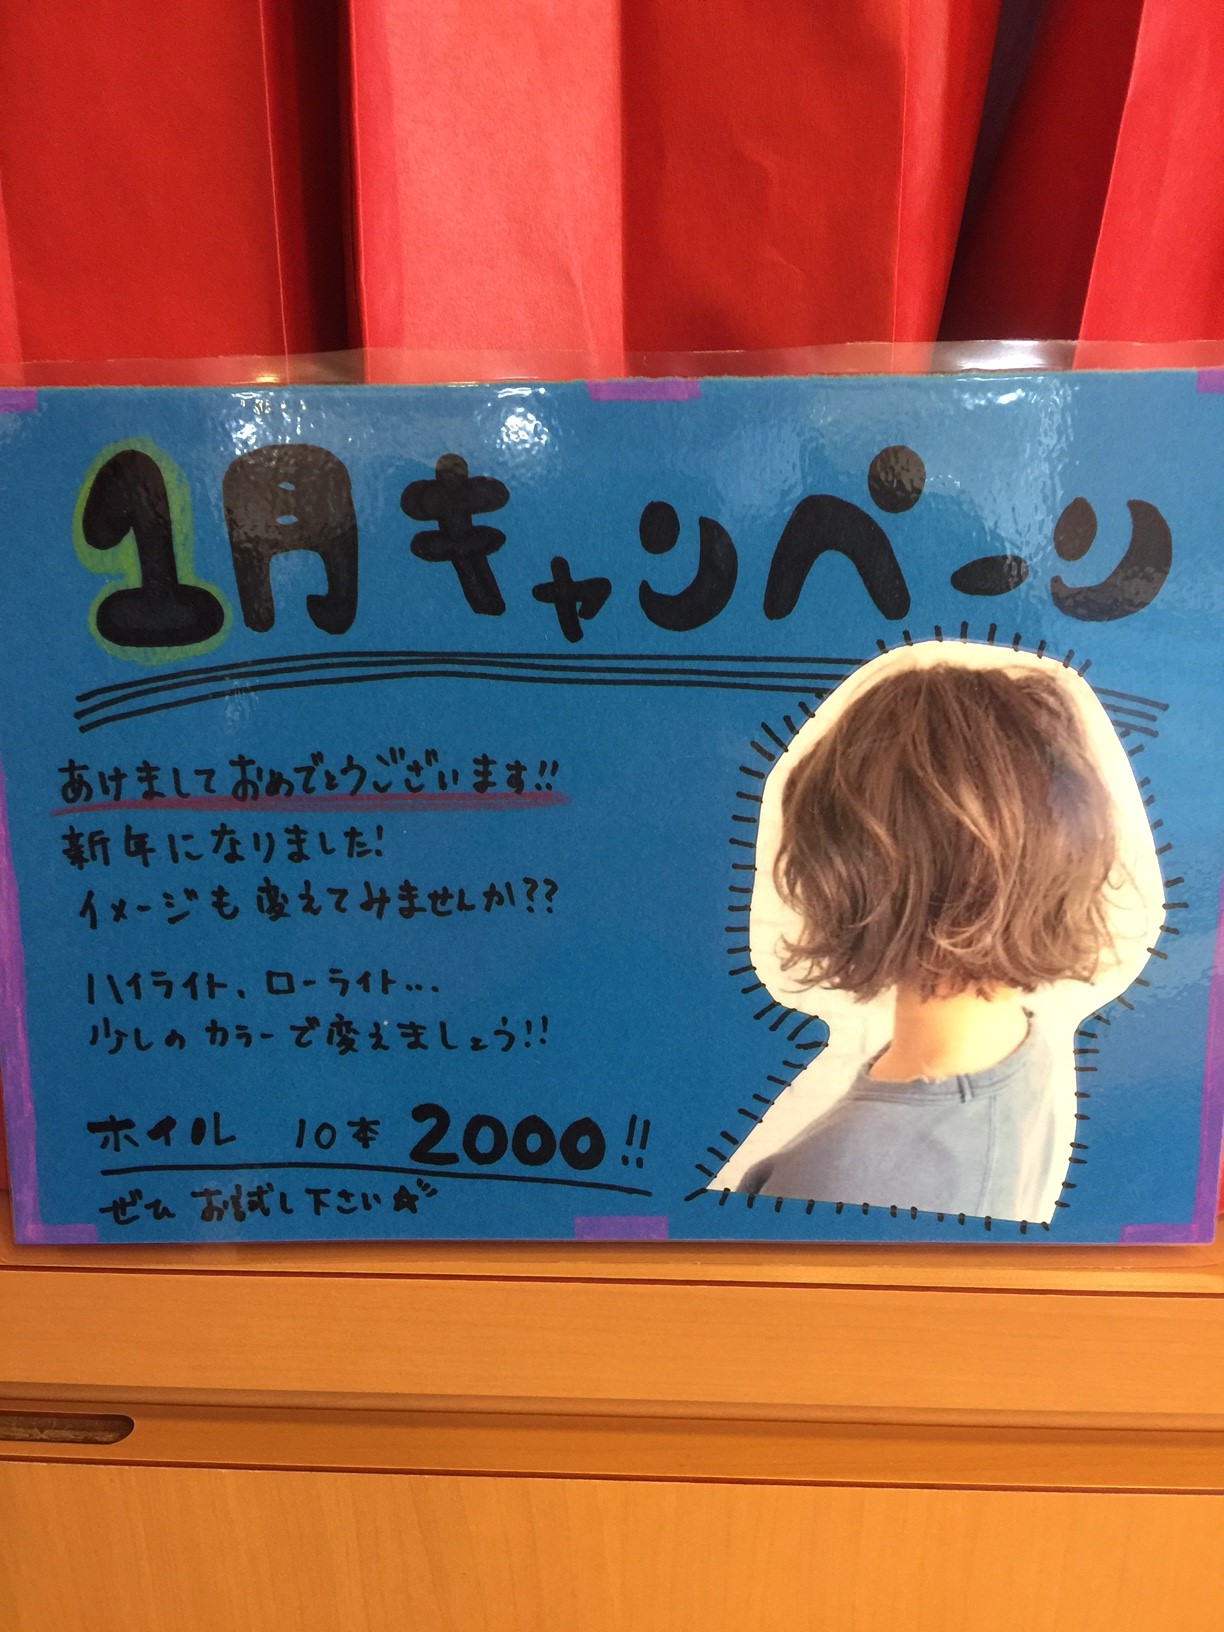 1月キャンペーン
あけましておめでとうございます!!
新年になりました!
イメージも変えてみませんか??
ハイライト、ローライト...
少しのカラーで変えましょう!!
ホイル 10本 2000!!
ぜひ お試し下さい☆